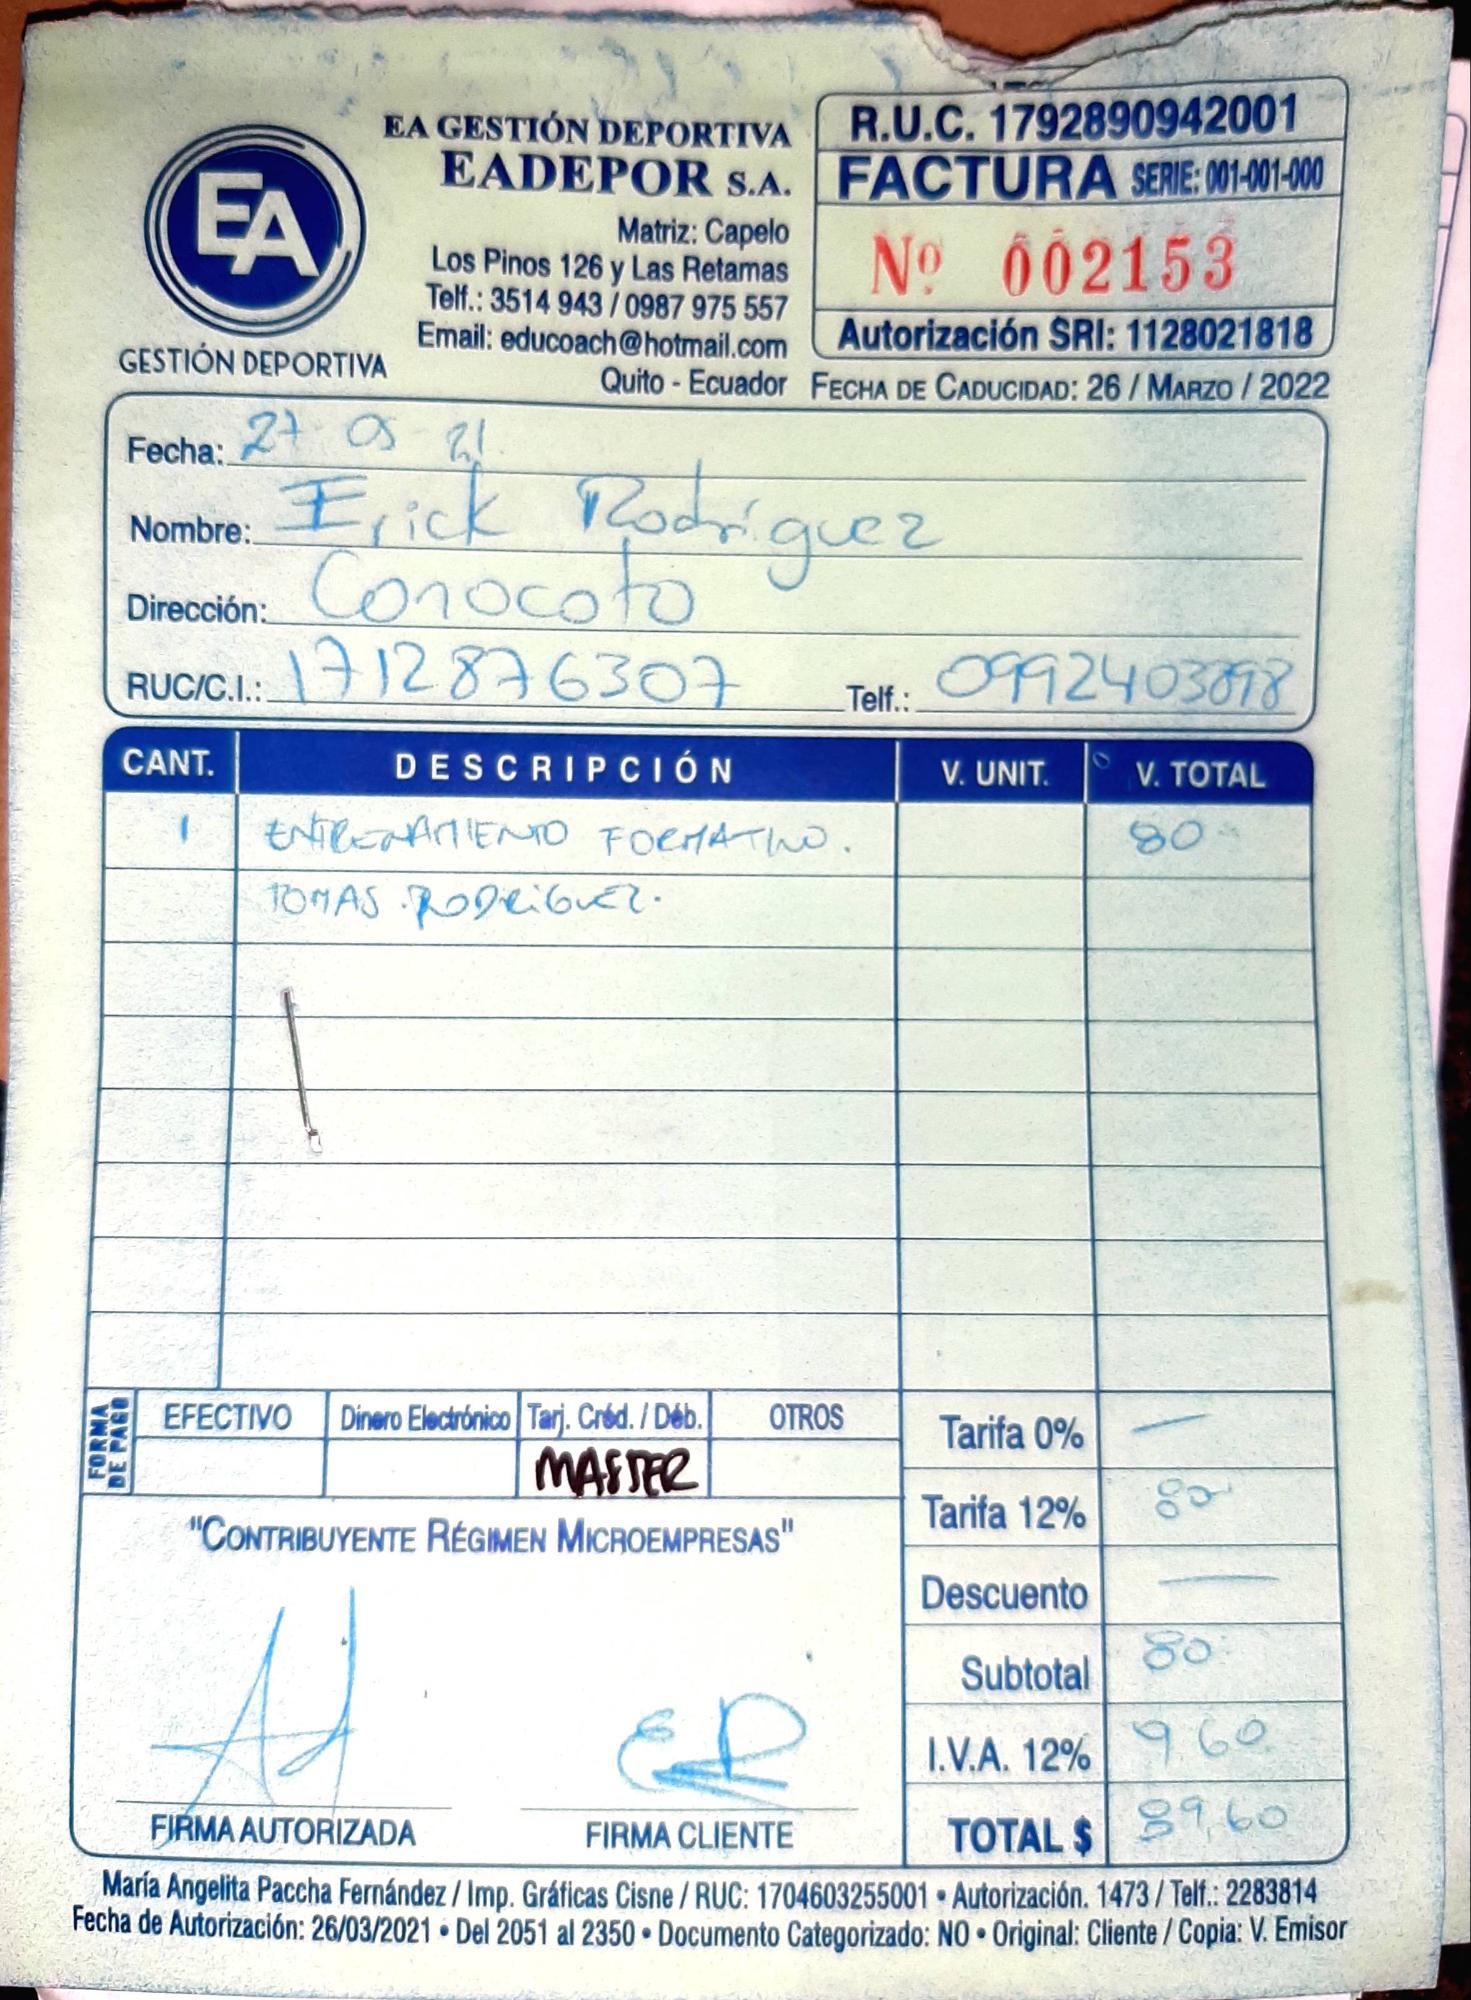 EA
GESTIÓN DEPORTIVA
EA GESTIÓN DEPORTIVA
EADEPOR S.A.
Matriz: Capelo
Los Pinos 126 y Las Retamas
Telf.: 3514 943 / 0987 975 557
Email: educoach@hotmail.com
Quito - Ecuador
R.U.C. 1792890942001
FACTURA SERIE: 001-001-000
Nº 002153
Autorización SRI: 1128021818
FECHA DE CADUCIDAD: 26 / MARZO / 2022
Fecha: 27 05 21
Nombre: Erick Rodríguez
Dirección: Conocoto
RUC/C.I.: 1712876307 Telf.: 0992403898
CANT. DESCRIPCIÓN V. UNIT. V. TOTAL
1 ENTRENAMIENTO FORMATIVO. 80
TOMAS RODRíGUEZ.
FORMA DE PAGO
EFECTIVO Dinero Electrónico Tarj. Créd. / Déb. OTROS
MASTER
Tarifa 0% —
Tarifa 12% 80
Descuento —
Subtotal 80
I.V.A. 12% 9.60
TOTAL $ 89,60
"CONTRIBUYENTE RÉGIMEN MICROEMPRESAS"
FIRMA AUTORIZADA FIRMA CLIENTE
María Angelita Paccha Fernández / Imp. Gráficas Cisne / RUC: 1704603255001 • Autorización. 1473 / Telf.: 2283814
Fecha de Autorización: 26/03/2021 • Del 2051 al 2350 • Documento Categorizado: NO • Original: Cliente / Copia: V. Emisor